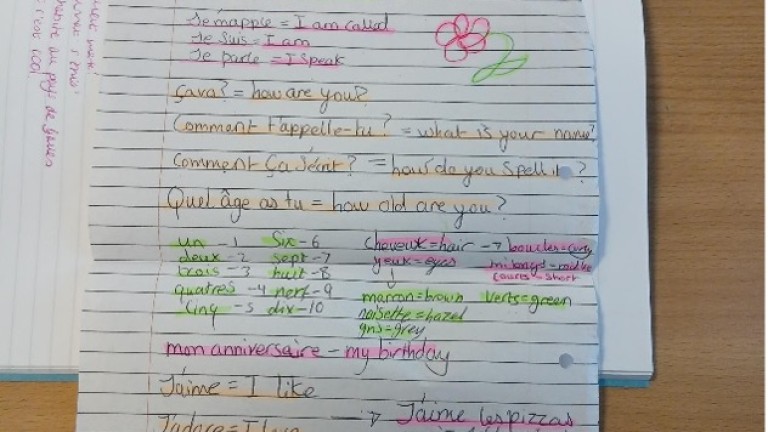 Je mapple = I am called
Je Suis = I am
Je parle = I speak
ça va? = how are you?
Comment t'appelle-tu? = what is your name?
Comment ça s'écrit? = how do you spell it?
Quel âge as tu = how old are you?
un - 1 Six - 6 cheveux = hair → boucles = curly
deux - 2 sept - 7 yeux = eyes
trois - 3 huit - 8 courts - short
quatres - 4 neuf - 9 marron = brown verts = green
cinq - 5 dix - 10 noisette = hazel
gris = grey
mon anniversaire - my birthday
J'aime = I like
J'adore = I love → J'aime les pizzas
pays de galles